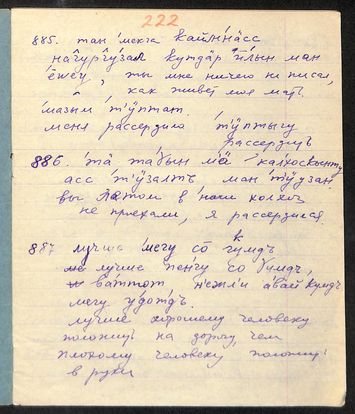 222
885. тан ме́кга кайн'на́сс
нағурғу́зал кутда́р и́лын ман
ёжеу, ты мне ничего не писал,
как живёт моя мать.
мазым т'ӱптат
меня рассердило т'ӱптыгу
рассердить
886. та̄ та́бын мӣ калхоскынты
асс т'ӱзалтъ ман т'ӱузан
вы летом в наш колхоз
не приехали, я рассердился
887 лучше ме́гу со̄ к гумдъ
лучше пе́нгу со гумдъ,
ва́ттот не́жли авай кумдъ
мегу удо́тдъ.
лучше хорошему человеку
положить на дорогу, чем
плохому человеку положить
в руки